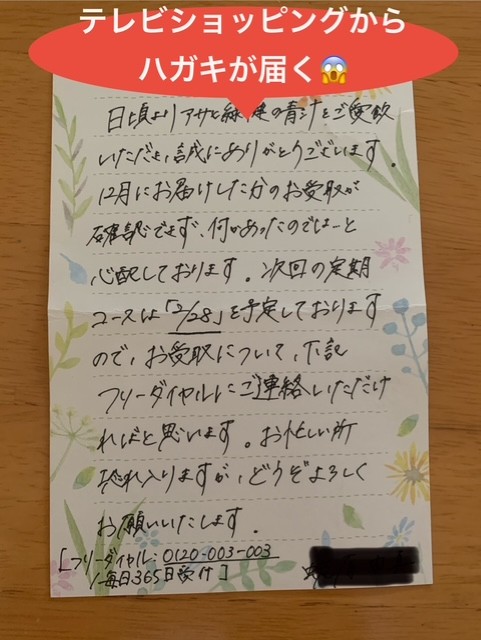 テレビショッピングから
ハガキが届く😱
日頃よりアサヒ緑健の青汁をご愛飲
いただき、誠にありがとうございます。
12月にお届けした分のお受取が
確認できず、何かあったのではーと
心配しております。次回の定期
コースは「2/28」を予定しております
ので、お受取について、下記
フリーダイヤルにご連絡いただけ
ればと思います。お忙しい所
恐れ入りますが、どうぞよろしく
お願いいたします。
[フリーダイヤル:0120-003-003
毎日365日受付]